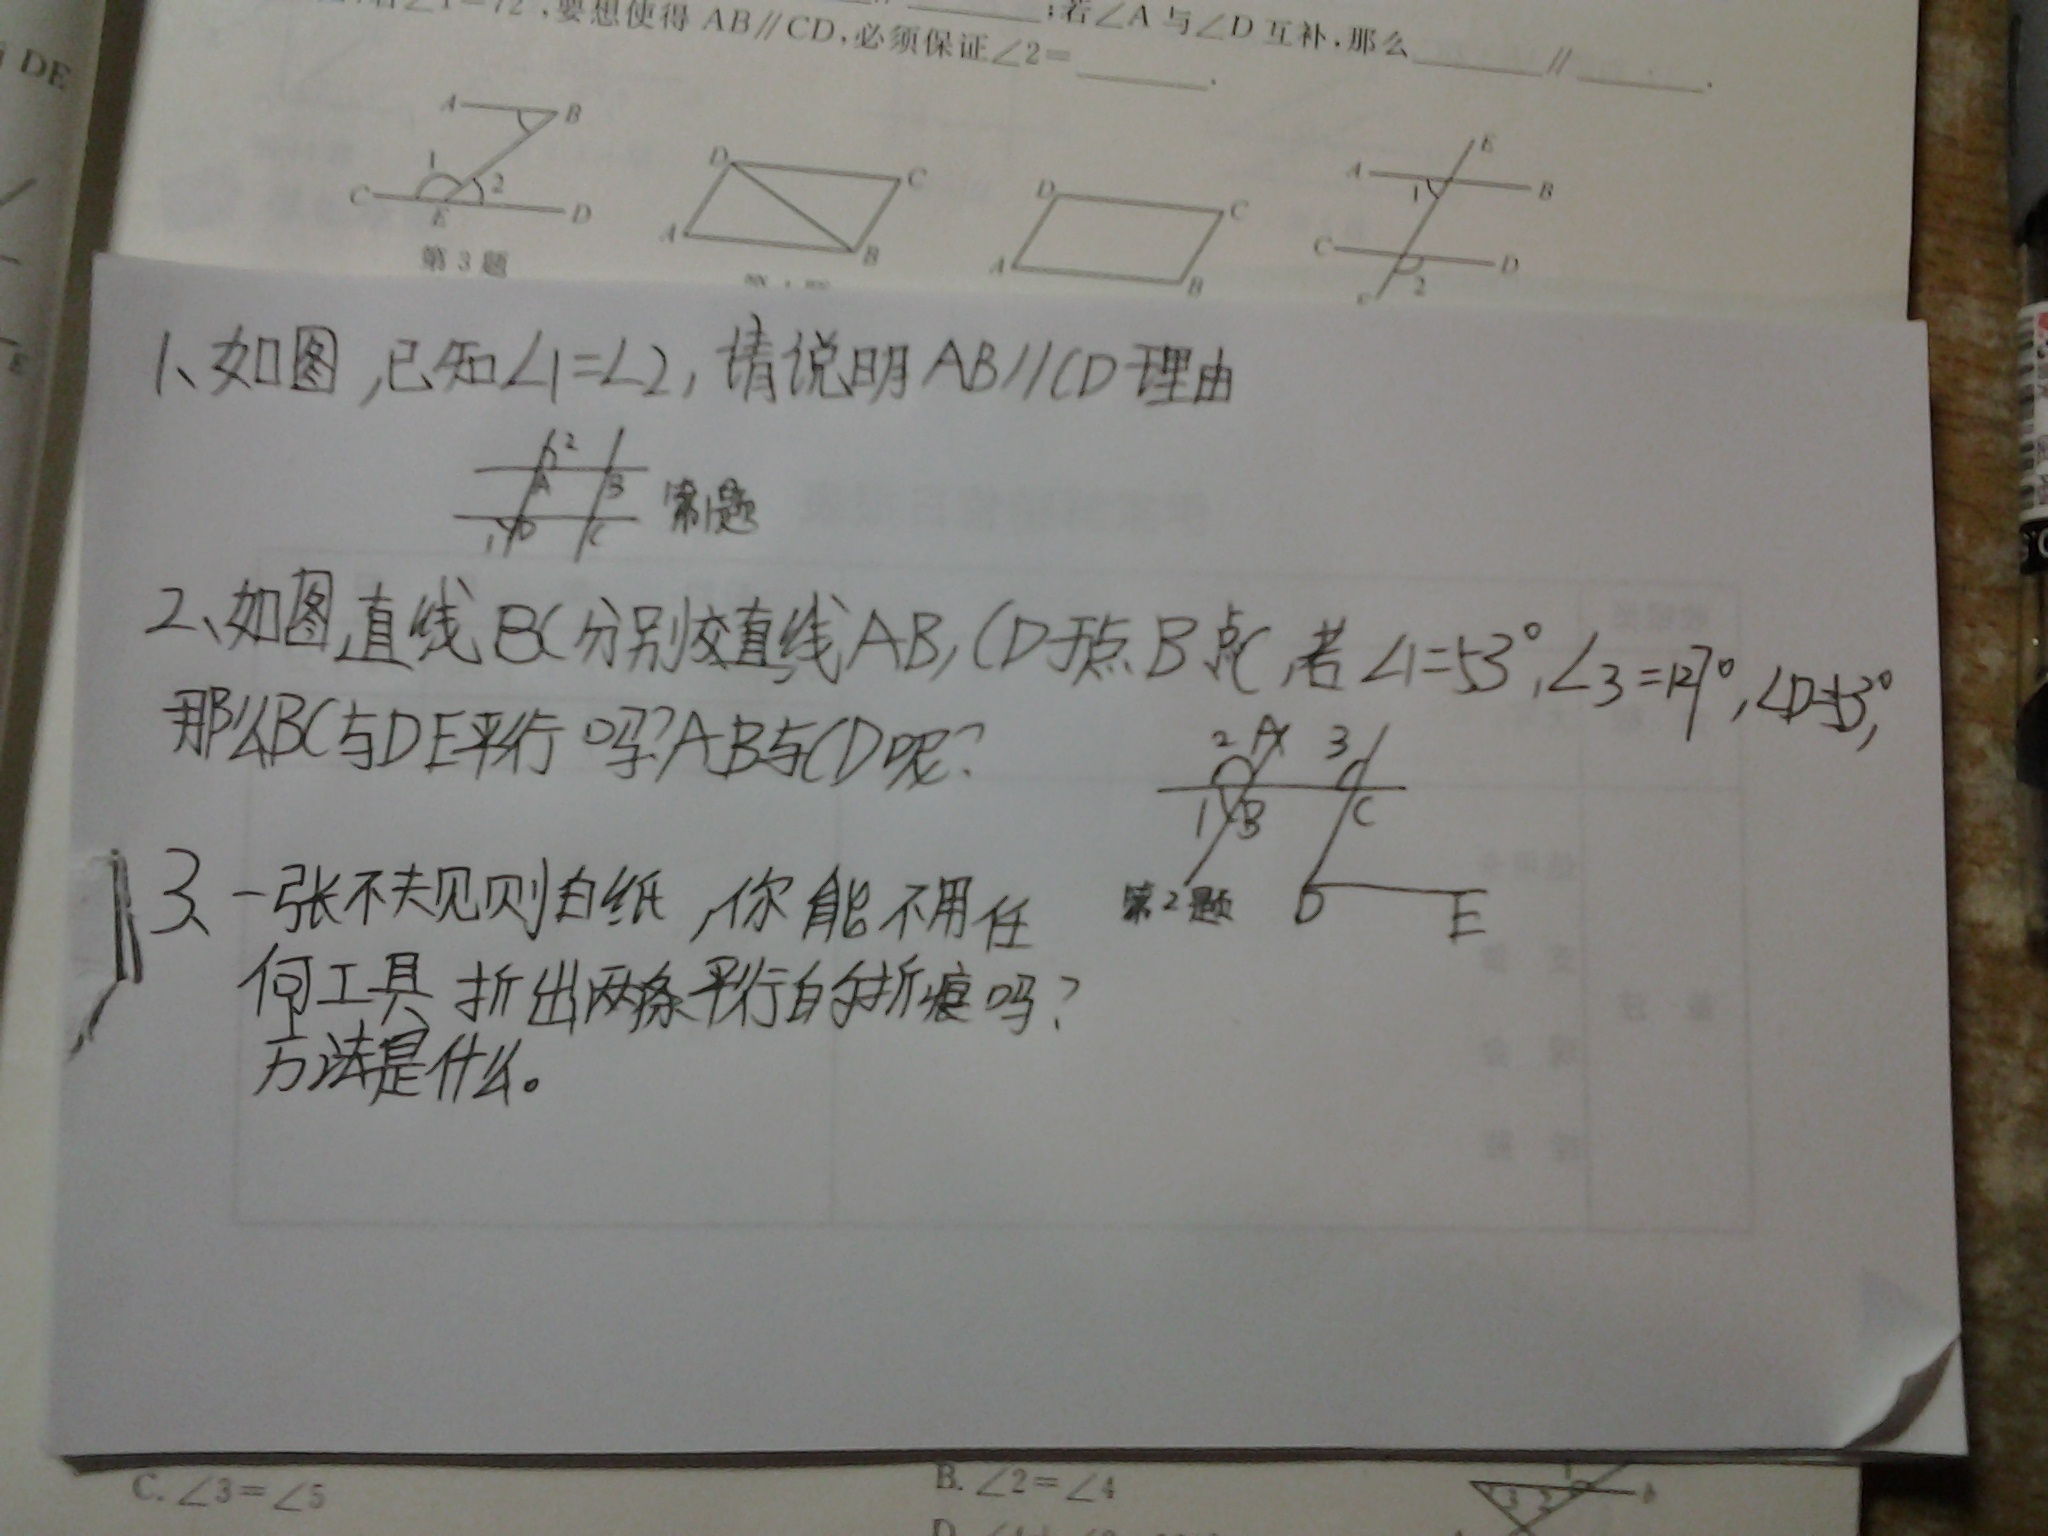 DE
∠1=72°,要想使得AB∥CD,必须保证∠2=______.
;若∠A与∠D互补,那么______∥______.
A B
1 2
C E D
第3题
D C
A B
D C
A B
E
A 1 B
C D
2
1、如图,已知∠1=∠2,请说明AB//CD理由
2
A B
1 D C
第1题
2、如图,直线BC分别交直线AB,CD于点B点C,若∠1=53°,∠3=127°,∠D=53°,
那么BC与DE平行吗?AB与CD呢?
2 A 3
1 B C
D E
第2题
3、一张不夫见则白纸,你能不用任
何工具折出两条平行的折痕吗?
方法是什么。
C. ∠3=∠5
B. ∠2=∠4
3 2